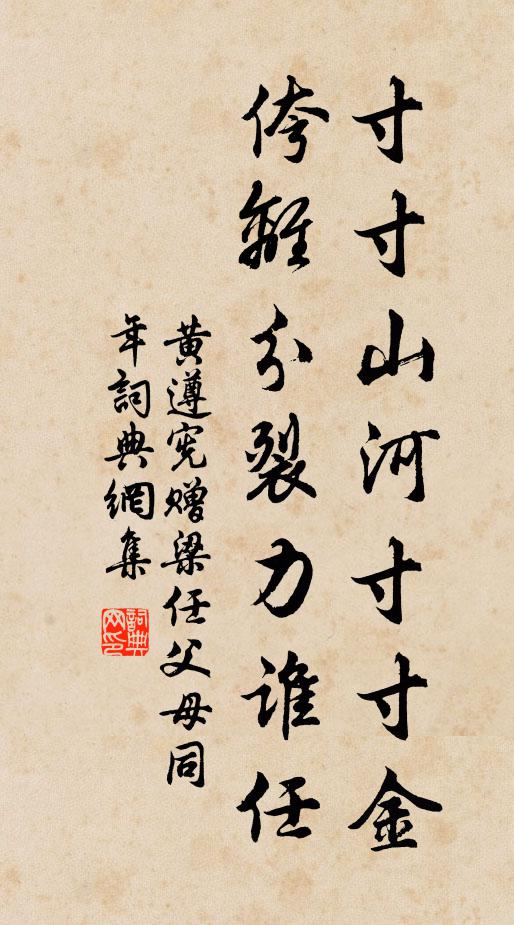 寸寸山河寸寸金
侉離分裂力誰任
黃遵宪赠梁任父母同
年詞典網集
詞典网印